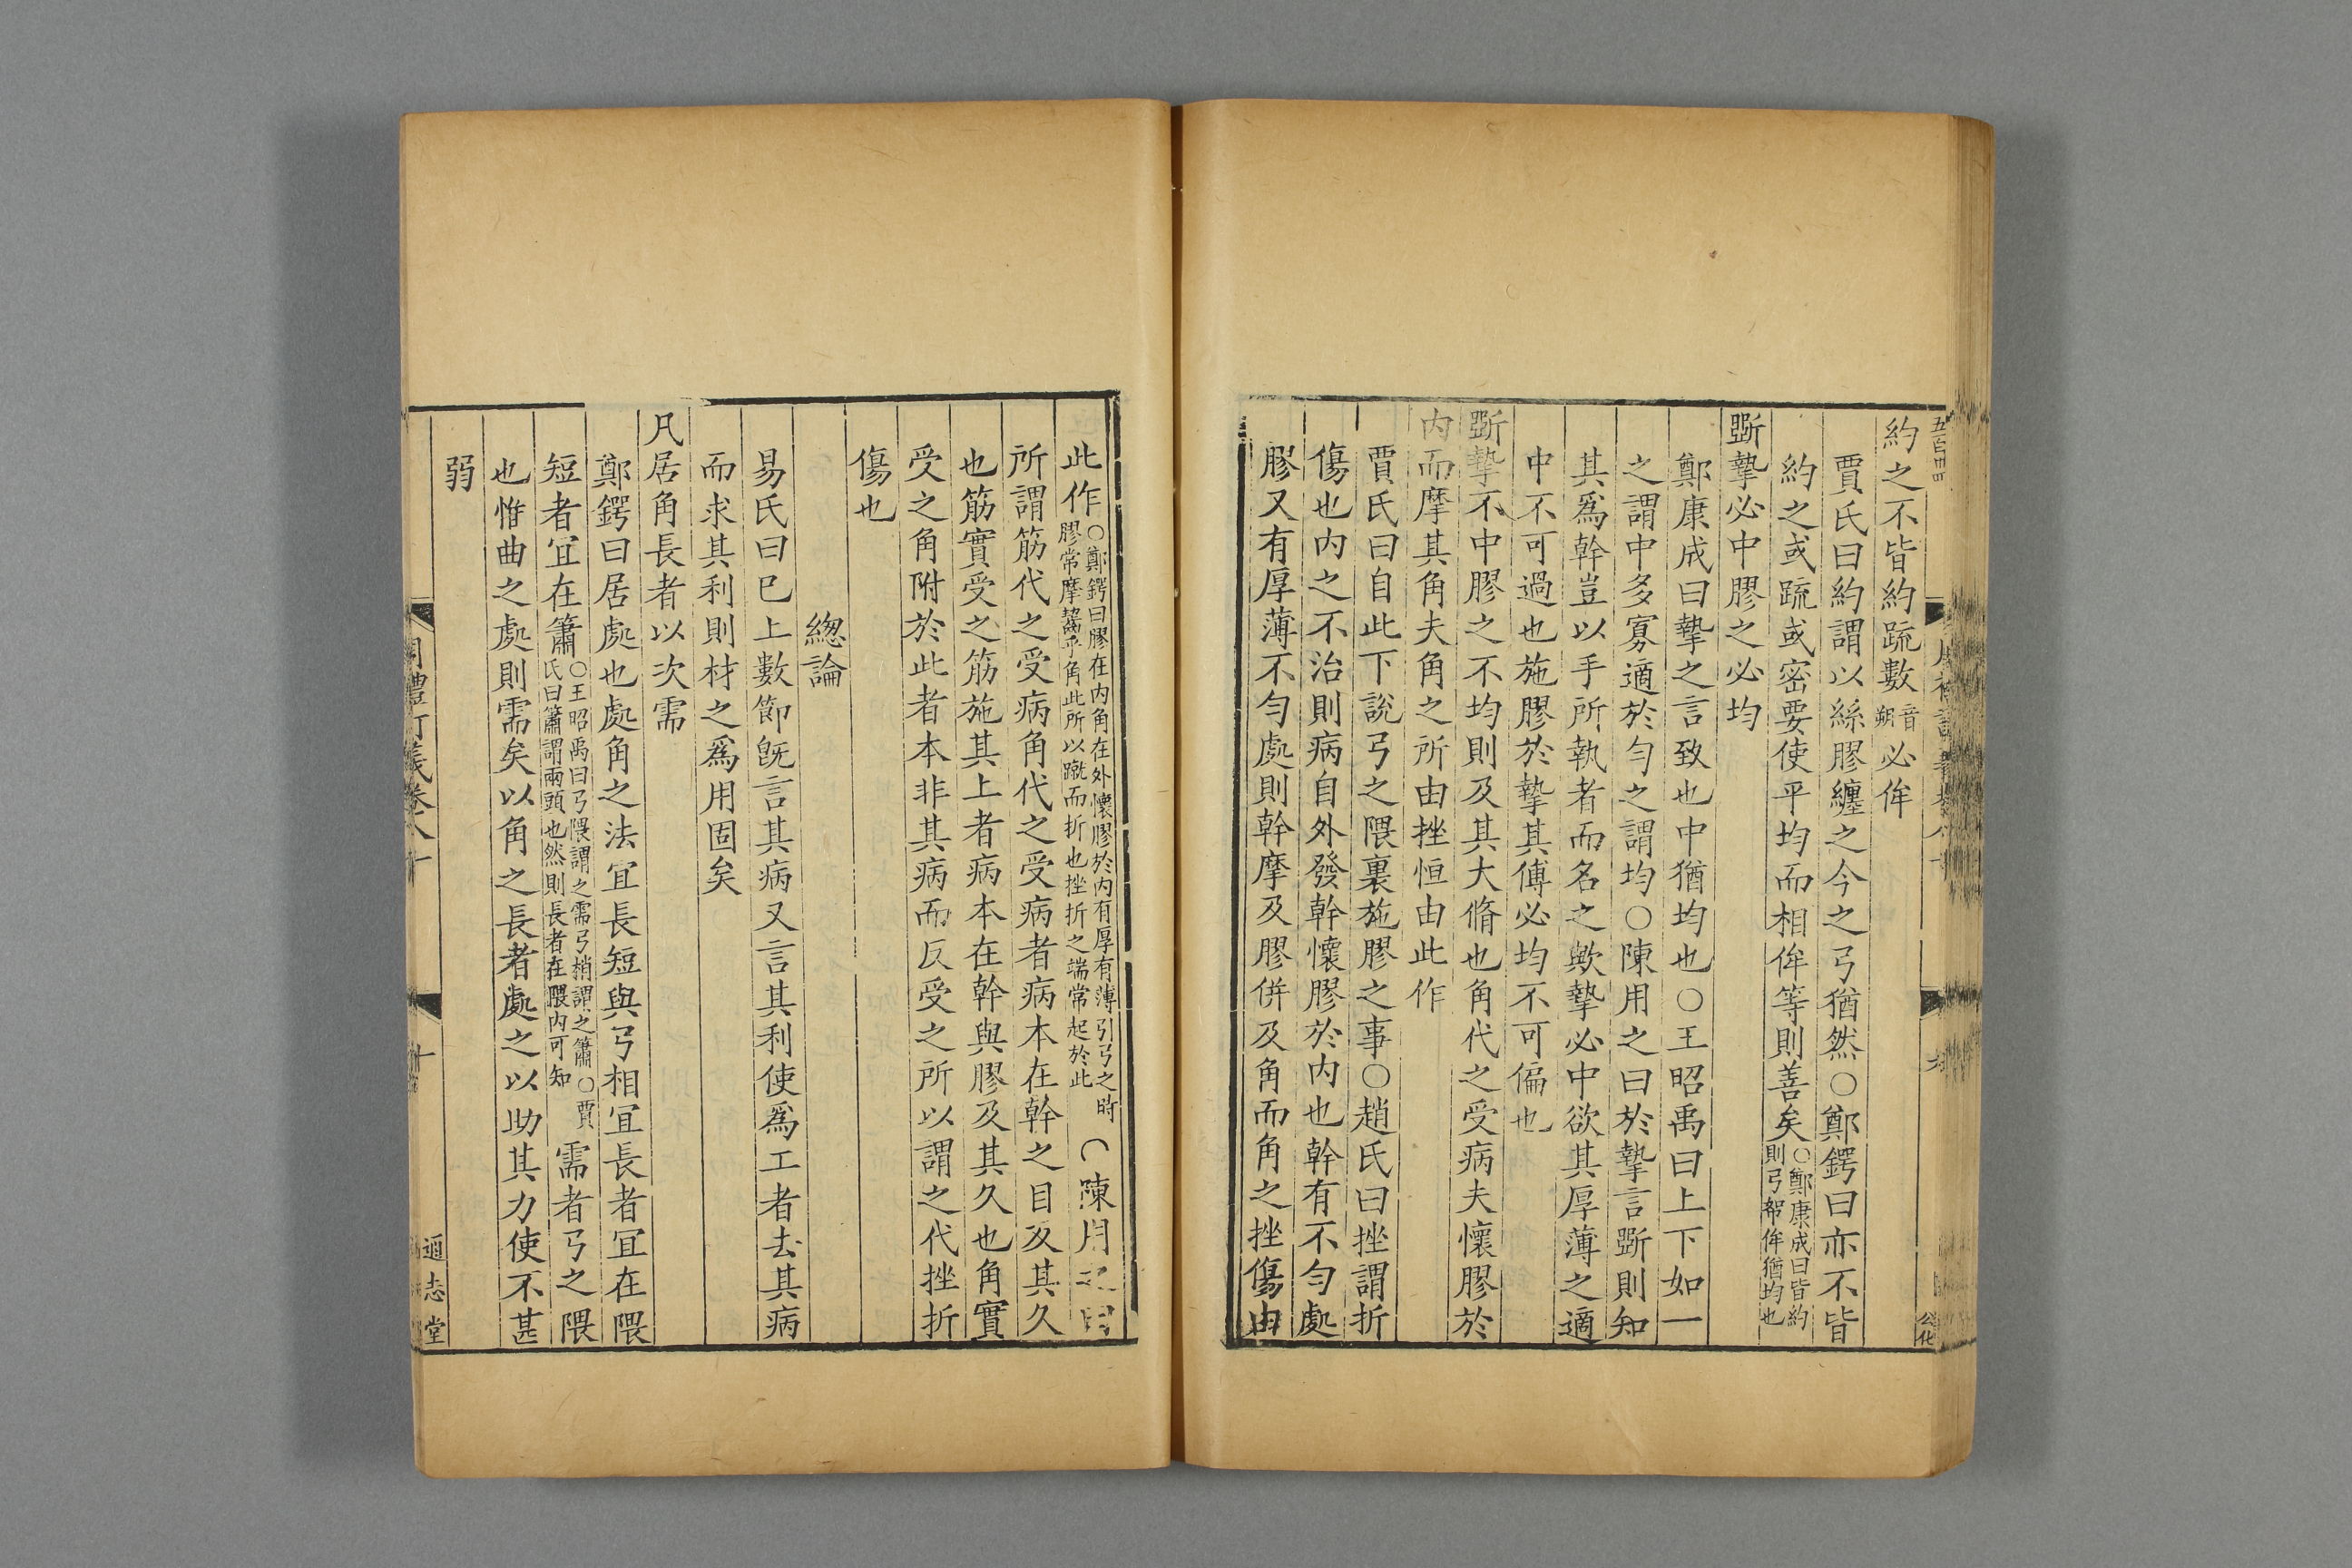 五百卌四
約之不皆約䟽數音朔必侔
賈氏曰約謂以絲膠纏之今之弓猶然○鄭鍔曰亦不皆
約之或䟽或密要使平均而相侔等則善矣○鄭康成曰皆約則弓帤侔猶均也
斵摯必中膠之必均
鄭康成曰摯之言致也中猶均也○王昭禹曰上下如一
之謂中多寡適於勻之謂均○陳用之曰於摯言斵則知
其爲幹豈以手所執者而名之歟摯必中欲其厚薄之適
中不可過也施膠於摯其傅必均不可偏也
斵摯不中膠之不均則及其大脩也角代之受病夫懷膠於
内而摩其角夫角之所由挫恒由此作
賈氏曰自此下說弓之隈裏施膠之事○趙氏曰挫謂折
傷也内之不治則病自外發幹懷膠於内也幹有不勻處
膠又有厚薄不勻處則幹摩及膠併及角而角之挫傷由
此作○鄭鍔曰膠在内角在外懷膠於内有厚有薄引弓之時膠常摩齧乎角此所以蹴而折也挫折之端常起於此○陳用之曰
所謂筋代之受病角代之受病者病本在幹之目及其久
也筋實受之筋施其上者病本在幹與膠及其久也角實
受之角附於此者本非其病而反受之所以謂之代挫折
傷也
緫論
易氏曰巳上數節旣言其病又言其利使爲工者去其病
而求其利則材之爲用固矣
凡居角長者以次需
鄭鍔曰居處也處角之法宜長短與弓相宜長者宜在隈
短者宜在簫○王昭禹曰弓隈謂之需弓梢謂之簫○賈氏曰簫謂兩頭也然則長者在隈内可知需者弓之隈
也惟曲之處則需矣以角之長者處之以助其力使不甚
弱
周禮訂義卷八十
通志堂